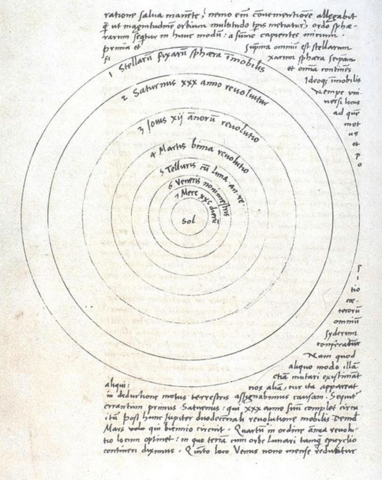 ratione salua manente, nemo em̄ conuenientiorē allegabit
q̄ ut magnitudinem orbium multitudo tp̄is metiatur, ordo sphæ-
rarum sequitur in hunc modū: a summo capientes initium.
prima et suprema omniū est stellarum
fixarum sphæra seipsam
et omnia continens
Ideoq; īmobilis
nempe uni-
uersi locus
ad quē
mot
us
et
po
1 Stellarū fixarū sphæra īmobilis
2 Saturnus xxx anno reuoluitur
3 Jouis xij annorū reuolutio
4 Martis bima reuolutio
5 Telluris cū luna an. re.
6 Veneris nonimestris
7 Merc. xxc dierū
Sol
s
i
tio
cæ-
terorū
omniū
syderum
conferatur
Nam quod
aliquo modo illā
etiā mutari existimāt
aliqui: nos aliā, cur ita appareat
in deductione motus terrestris assignabimus causam. Sequitur
errantium primus Saturnus: qui xxx anno suū complet circu
itū post hunc Jupiter duodecennali reuolutione mobilis Deinde
Mars uolo qui biennio circuit. Quartū in ordine annua reuolu
tio locum optinet: in quo terrā cum orbe lunari tanq̄ epicyclio
contineri diximus. Quinto loco Venus nono mense reducitur